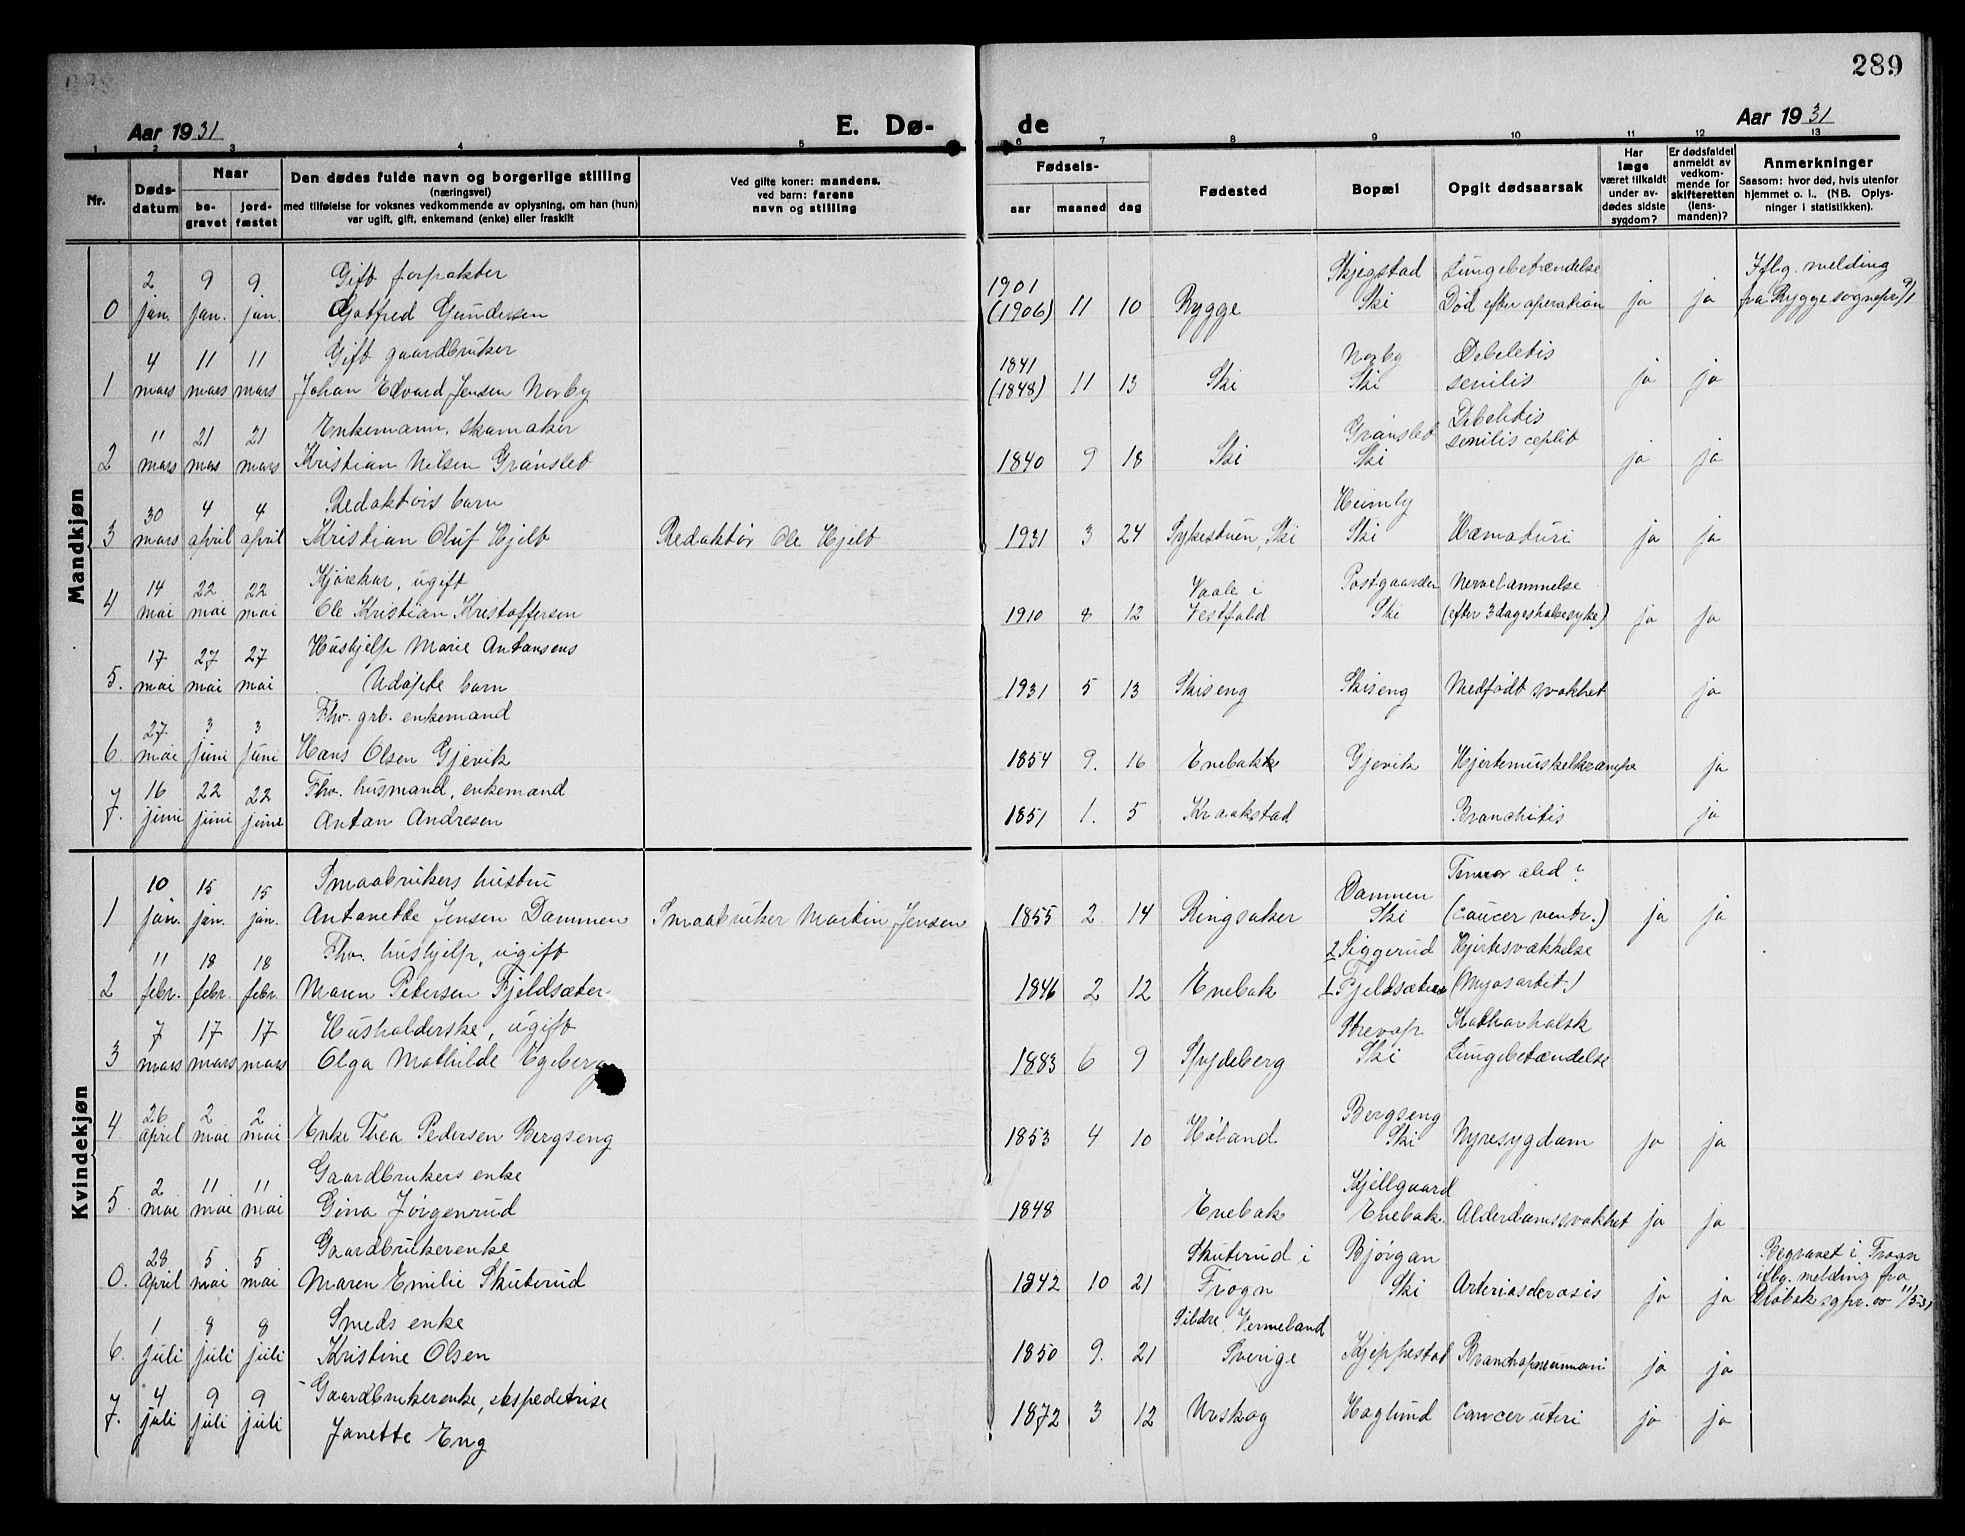 289
Aar 1931 E. Dø- de Aar 1931
1 2 3 4 5 6 7 8 9 10 11 12 13
Nr. Døds-datum Naar be-gravet jord-fæstet Den dødes fulde navn og borgerlige stilling (næringsvei) med tilføielse for voksnes vedkommende av oplysning, om han (hun) var ugift, gift, enkemand (enke) eller fraskilt Ved gifte koner: mandens, ved barn: farens navn og stilling Fødsels- aar maaned dag Fødested Bopæl Opgit dødsaarsak Har læge været tilkaldt under av-dødes sidste sygdom? Er dødsfaldet anmeldt av vedkom-mende for skifteretten (lens-manden)? Anmerkninger Saasom: hvor død, hvis utenfor hjemmet o. l., (NB. Oplys-ninger i statistikken).
Mandkjøn
2 9 9 Gift forpakter 1901 Skjegstad Lungebetændelse Iflg. melding
0 jan. jan. jan. Gotfred Gundersen (1906) 11 10 Rygge Ski Død efter operation ja ja fra Rygge sognepr. 9/1
4 11 11 Gift gaardbruker 1841 Norby Debeletis
1 mars mars mars Johan Edvard Jensen Norby (1848) 11 13 Ski Ski senilis ja ja
11 21 21 Enkemann. skomaker Granslet Debeletis
2 mars mars mars Kristian Nilsen Granslet 1840 9 18 Ski Ski senilis ja ja
30 4 4 Redaktørs barn Heimly
3 mars april april Kristian Oluf Hjelt Redaktør Ole Hjelt 1931 3 24 Sykestuen, Ski Ski Hæmaturi ja ja
14 22 22 Kjøreskar, ugift Vaale i Postgaarden Nervelammelse
4 mai mai mai Ole Kristian Kristoffersen 1910 8 12 Vestfold Ski (efter 3 dages halssyke) ja ja
17 27 27 Hushjelp Marie Antonsens
5. mai mai mai Udøpte barn 1931 5 13 Skiseng Skiseng Medfødt svakhet ja
27 3 3 Fhv. grb. enkemand
6. mai juni juni Hans Olsen Gjevik 1854 9. 16 Enebakk Gjevik Hjertemuskelkrampe ja
16 22 22 Fhv. husmand, enkemand
7. juni juni juni Anton Andresen 1851 1. 5 Kraakstad Bronchitis ja
Kvindekjøn
10 15 15 Smaabrukers hustru Dammen Tumor abd?
1 jan. jan. jan. Antonette Jensen Dammen Smaabruker Martin Jensen 1855 2. 14 Ringsaker Ski (cancer ventr.) ja ja
11 18 18 Fhv. hushjelp, ugift 2 Siggerud Hjertesvækkelse
2 febr. febr. febr. Maren Petersen Fjeldsæter 1846 2 12 Enebak 1 Fjeldsæter (Myocardit.)
7 17 17 Husholderske, ugift Strevap Katharhalsk
3 mars mars mars Olga Mathilde Egeberg 1883 6 9 Spydeberg Ski Lungebetændelse
26 2 2 Bergseng
4. april mai mai Enke Thea Pedersen Bergseng 1853 4 10 Høland Ski Nyresygdom ja ja
2 11 11 Gaardbrukers enke Kjellgaard
5. mai mai mai Gina Jørgenrud 1848 Enebak Enebak. Alderdomssvakhet ja ja
28 5 5 Gaardbrukerenke Skuterud i Bjørgan Begravet i Frogn
0. april mai mai Maren Emilie Skuterud 1842 10 21 Frogn Ski Arteriosclerosis ja ja iflg. melding fra
Drøbak sgpr. av 11/5-31
1 8 8 Smeds enke Sildre, Vermeland
6. juli juli juli Kristine Olsen 1850 9. 21 Sverige Kjeppestad Bronchopneumoni ja ja
4 9 9 Gaardbrukerenke, ekspeditrise
7. juli juli juli Janette Eng 1872 3 12 Urskog Haglund Cancer uteri ja ja